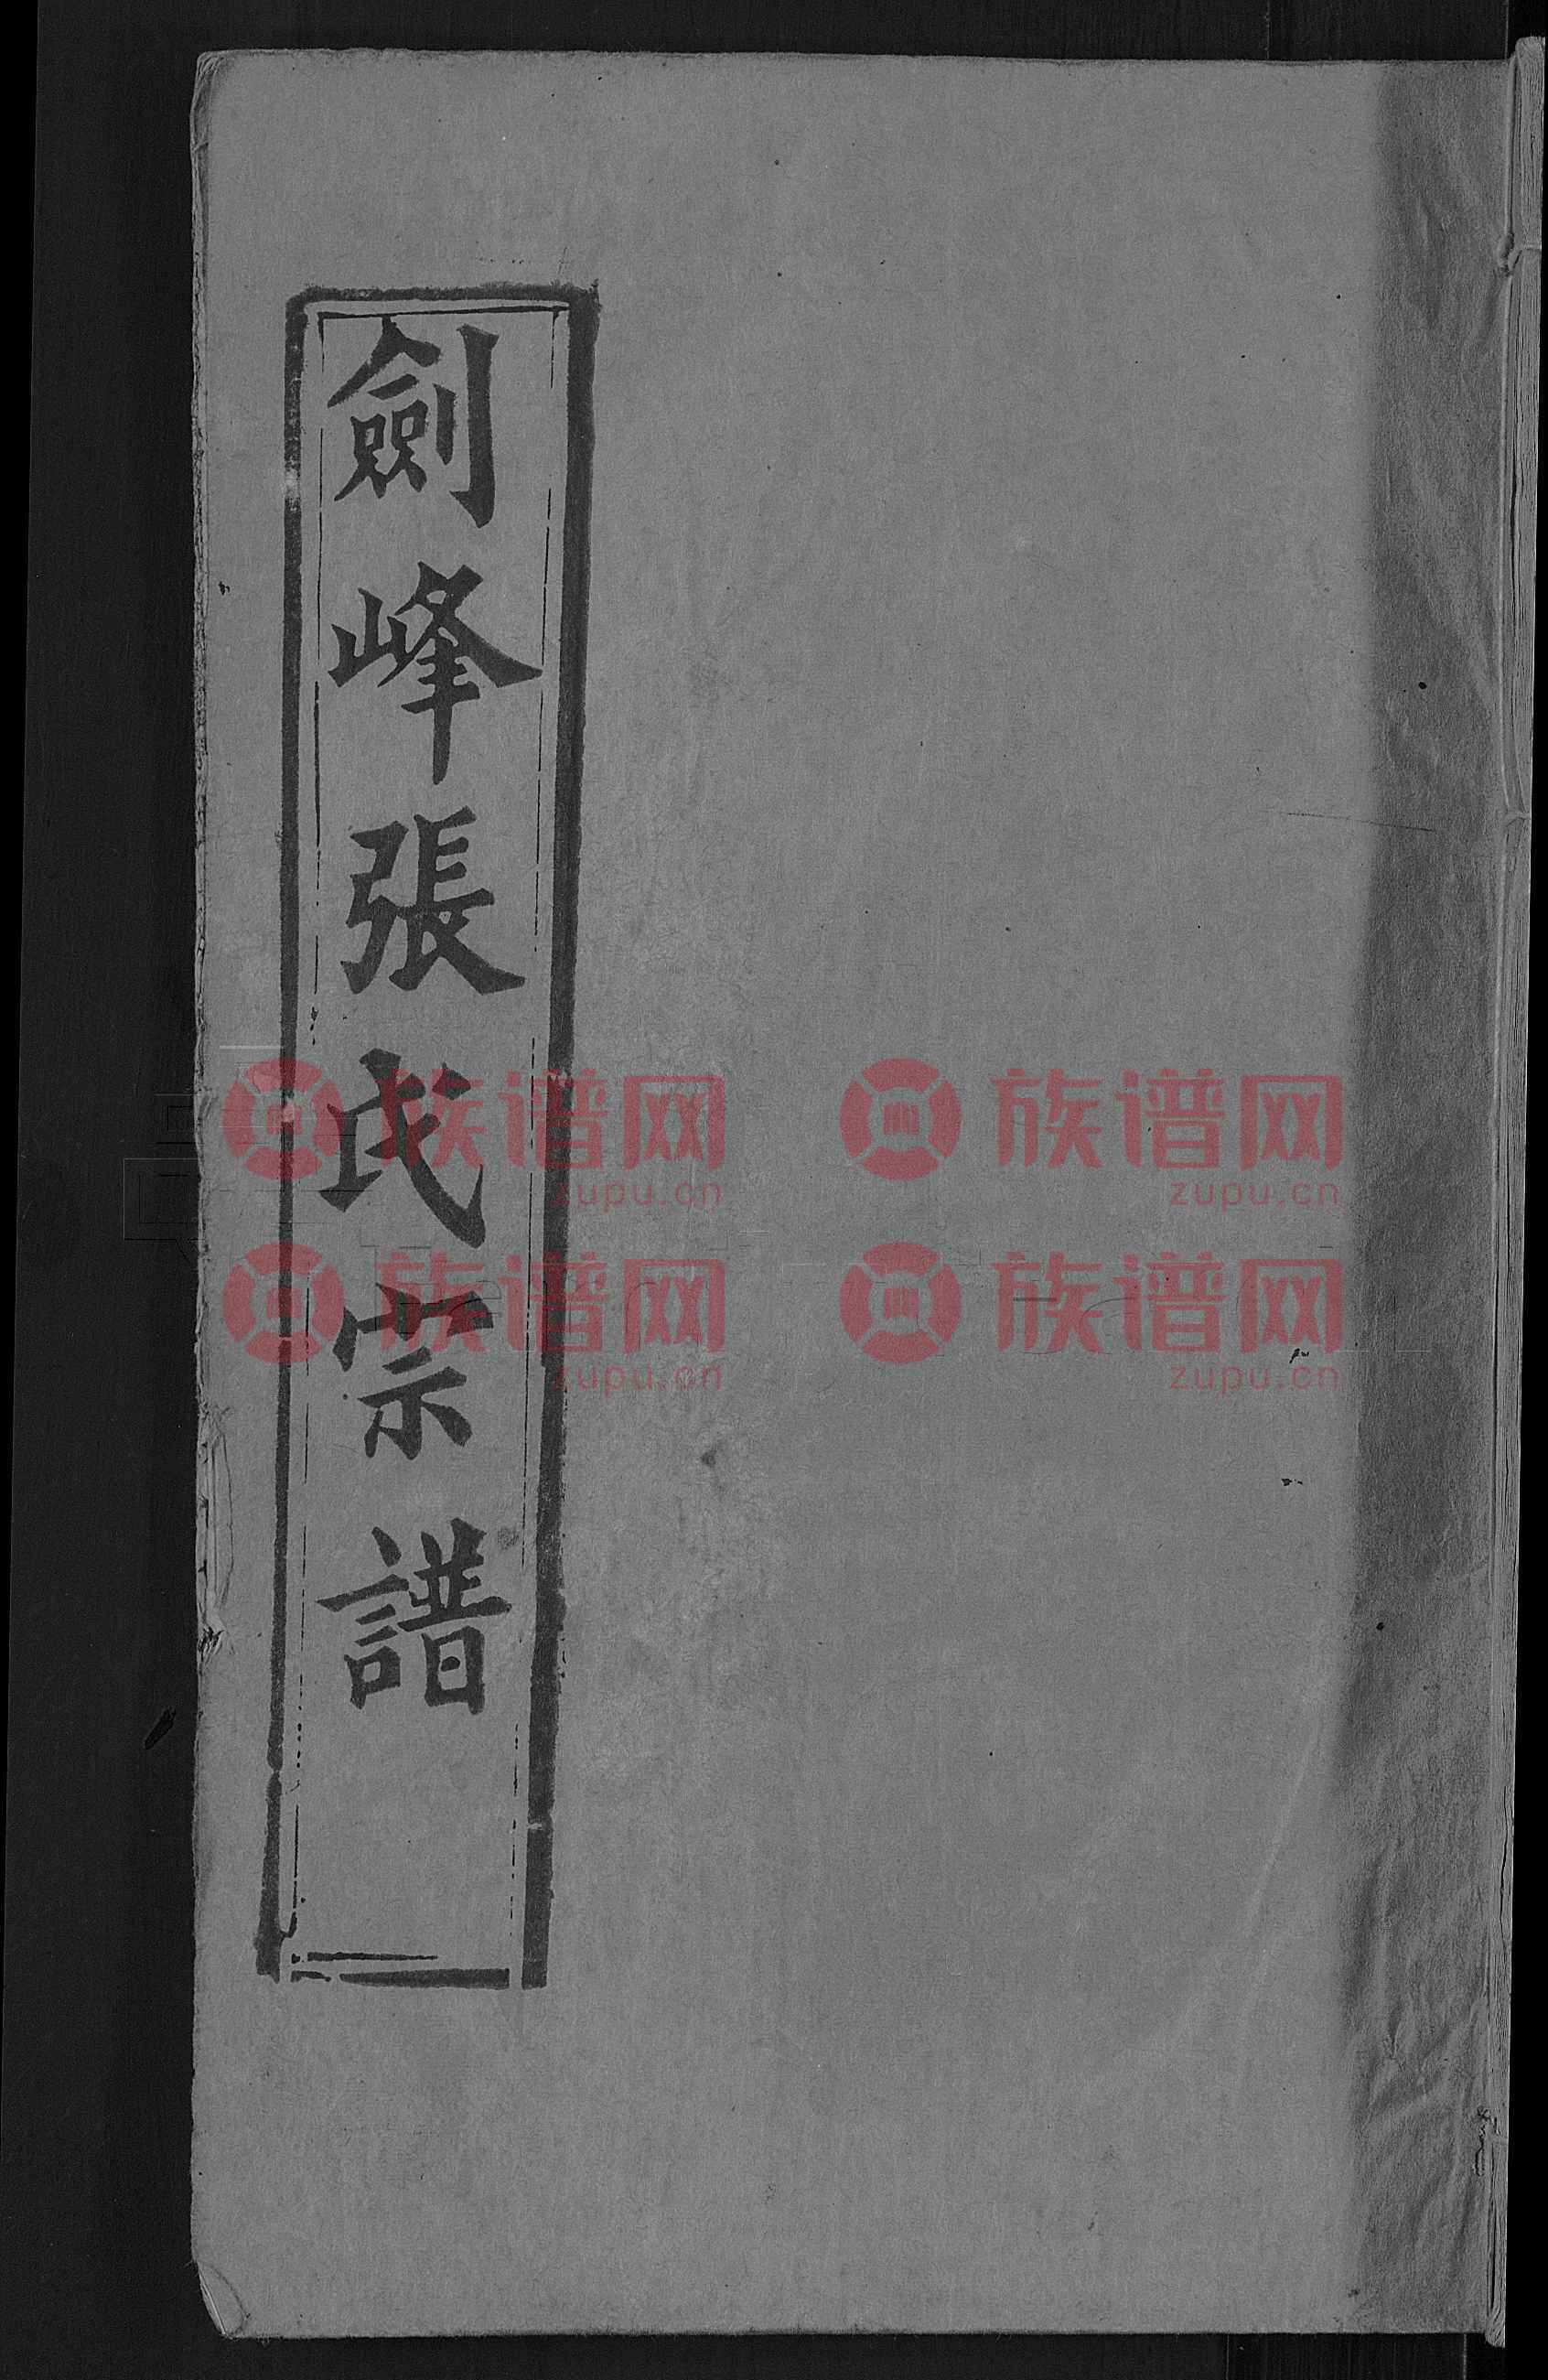 劍峰張氏宗譜
族谱网 族谱网
zupu.cn zupu.cn
族谱网 族谱网
zupu.cn zupu.cn